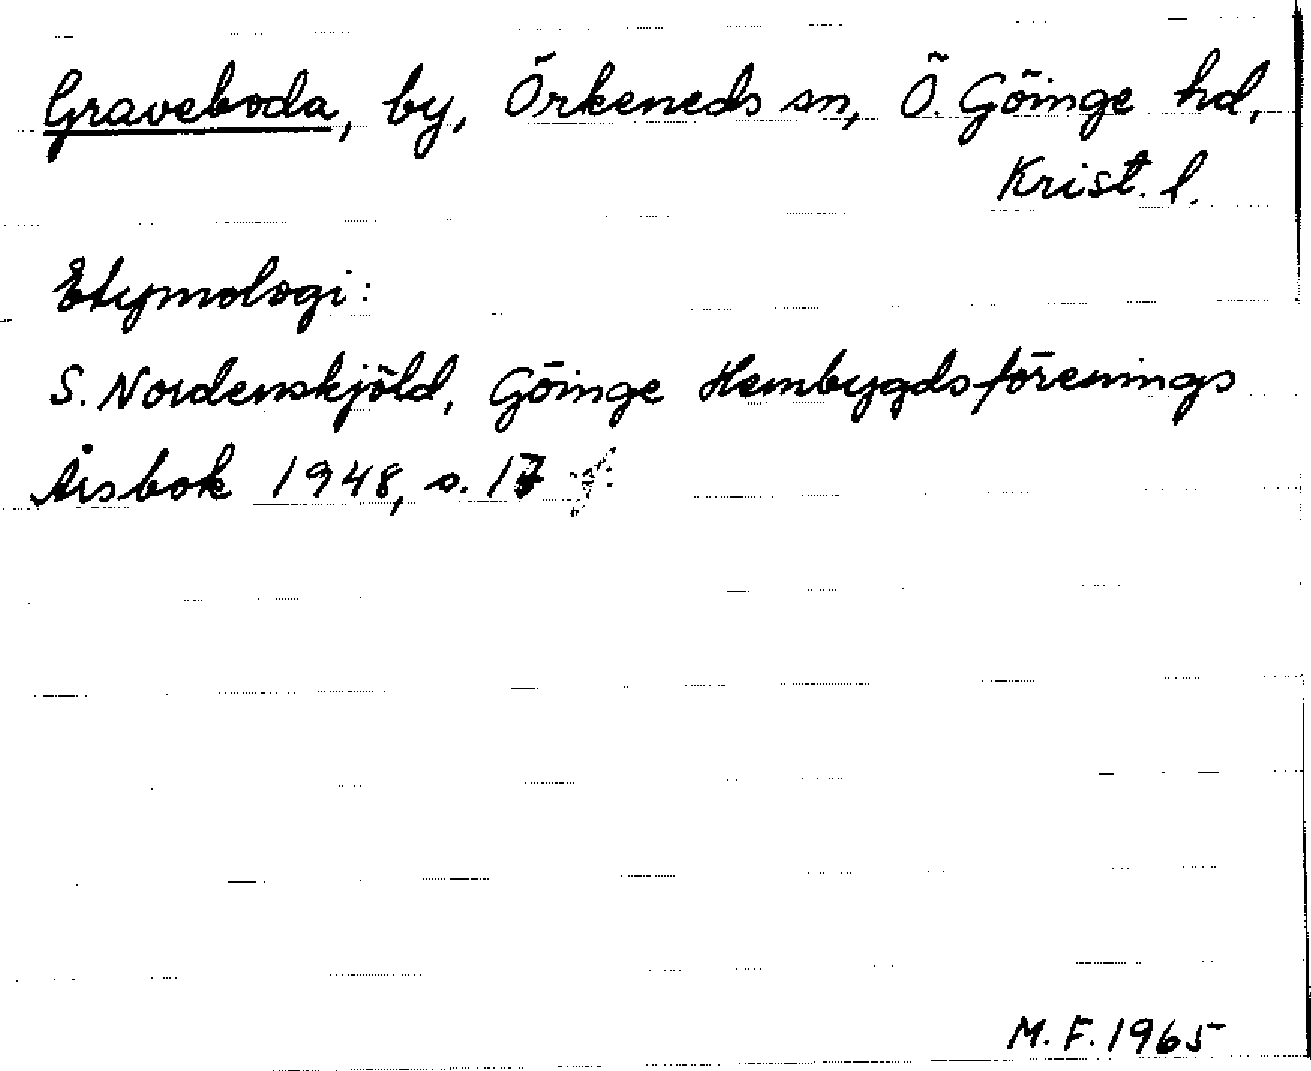 Graveboda, by, Örkeneds sn, Ö. Göinge hd,
Krist. l.
Etymologi:
S. Nordenskjöld, Göinge Hembygdsförenings
Årsbok 1948, s. 17 f.
M. F. 1965